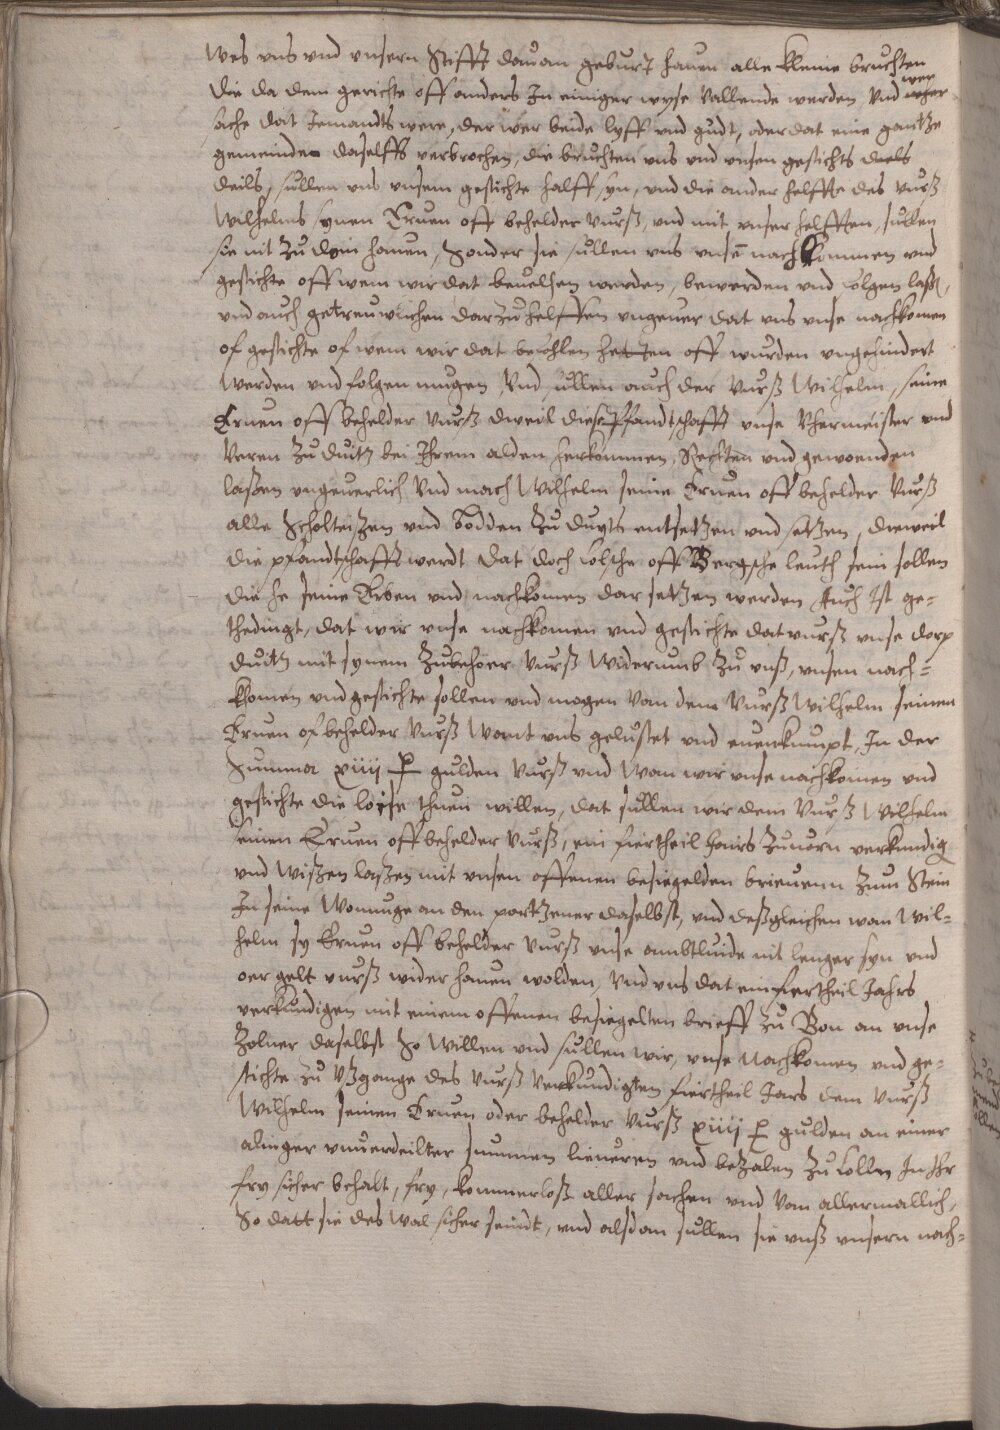 Wes vns vnd vnsern Stifft dauan geburt hauen alle kleine bruchten
die da dem gerichte off anders In einiger wyse Vallende werden, Vnd wer
sache dat Jemandts were, der wer beide lyff vnd gudt, oder dat eine gantze
gemeinden daselffs verbrochen, die bruchten vns vnd vnsen gestichts deels
deils, sullen vns vnsem gestichte halff syn, vnd die ander helffte des vurß
Wilhelms synen Eruen off behelder vurß, vnd mit vnser helfften, sullen
sie nit zu doin hauen, Sonder sie sullen vns vnse nachkommen vnd
gestichte off wem wir dat beuelhen werden, bewerden vnd volgen laßen,
vnd auch getreuwlichen darzu helffen vngeuer dat vns vnse nachkomen
of gestichte of wem wir dat beuohlen hetten off wurden vngehindert
werden vnd folgen mugen, Vnd sullen auch der Vurß Wilhelm, seine
Eruen off behelder Vurß dweil diese Pfandtschafft vnse Vhermeister vnd
Veren zu duitz bei Ihrem alden herkommen, Rechten vnd gewoenden
laßen vngeuerlich Vnd mach Wilhelm seine Eruen off behelder Vurß
alle Scholteißen vnd Bodden zu duyts entsetzen vnd setzen, dieweil
die pfandtschafft werdt dat doch Colsche off Bergsche leuth sein sollen
die he seine Erben vnd nachkomen dar setzen werden, Auch Ist ge=
thedingt, dat wir vnse nachkomen vnd gestichte dat vurß vnse dorp
duitz mit synem Zubehoer Vurß Widerumb zu vnß, vnsen nach=
khomen vnd gestichte sollen vnd mogen van dem Vurß Wilhelm seinen
Eruen of behelder Vurß Want vns gelustet vnd euenkumpt, In der
Summa xiiij gulden Vurß vnd Wan wir vnse nachkomen vnd
gestichte die loise thuen willen, dat sullen wir dem Vurß Wilhelm
seinen Eruen off behelder Vurß, ein fiertheil Jairs zuuorn verkundig
vnd wißen laßen mit vnsen offenen besiegelden brieuenn zum Stein
In seine Wonnuge an den portzener daselbst, vnd deßgleichen wan Wil=
helm sy Eruen off behelder Vurß vnse ambtluide nit lenger syn vnd
oer gelt vurß wider hauen wolden, Vnd vns dat ein fiertheil Jahrs
verkundigen mit einem offenen besiegelten brieff zu Bon an vnse
Zolner daselbst So willen vnd sullen wir, vnse Nachkomen vnd ge=
stichte zu Vßgange des Vurß Verkundigten fiertheil Jars dem vurß
Wilhelm seinen Eruen oder behelder Vurß xiiij gulden an einer
alinger vnuerdeilter summen lieueren vnd betzalen zu Collen In Ihr
fry sicher behalt, fry, kommerloß aller sachen vnd Van allermallich,
So datt sie des wal sicher seindt, vnd alsdan sullen sie vnß vnsern nach=